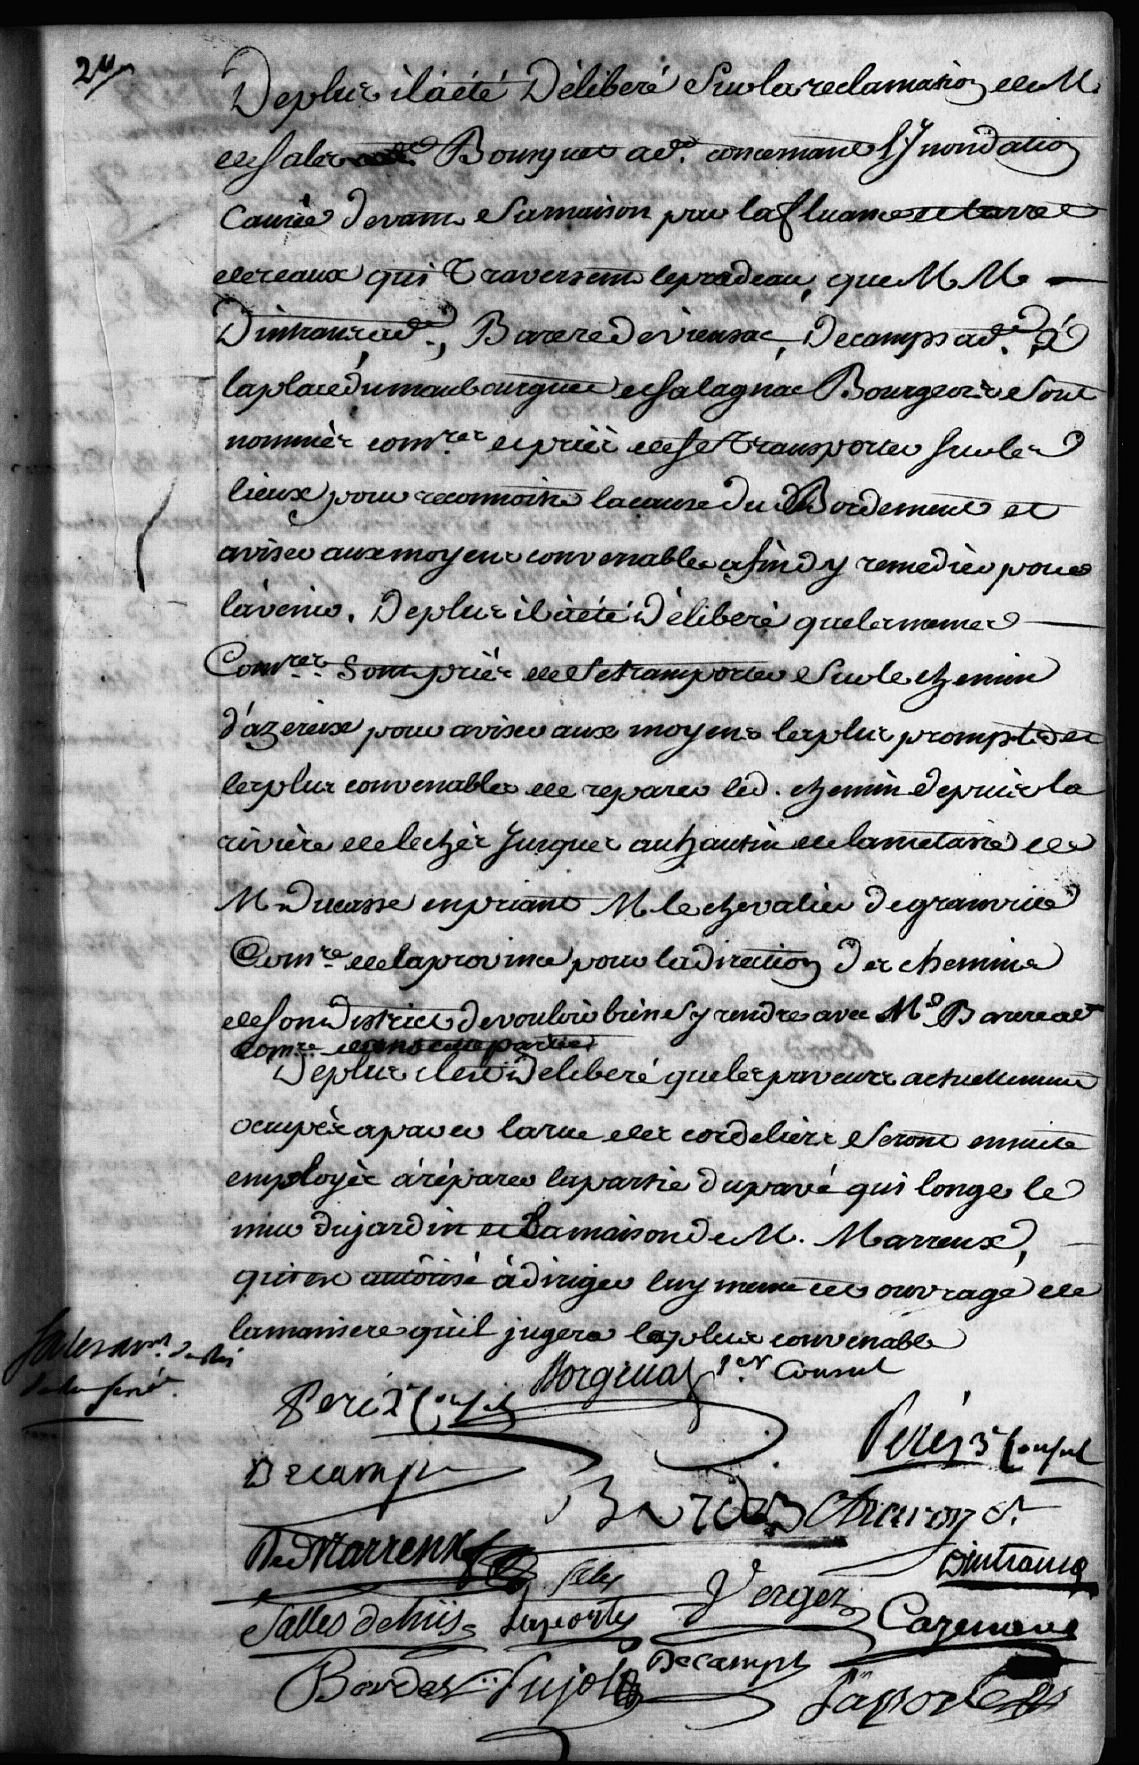 De plus il a été Délibéré Sur la reclamation de M.
de Sales Bousquet ad.t concernant L'Inondation
Causée devant Sa maison par la fluance
des eaux qui Traversent le pradeau, que M M
Dintrans ad.t, Barere de vieusac, Decamps ad.t, de
la place du maubourguet et Salagnac Bourgeois Sont
nommés com.res et priés de Se Transporter Sur les
lieux pour reconnoitre la cause du deBordement et
aviser aux moyens convenables afin d'y remedier pour
l'avenir. De plus il a été Délibéré que les memes
Com.res Sont priés de Se transporter Sur le chemin
d'azereix pour aviser aux moyens les plus prompts et
les plus convenables de reparer led. chemin depuis la
rivière de lechés Jusques au hautin de la metairie de
M Ducasse en priant M le chevalier de
Com.re de la province pour la direction des chemins
de Son District de vouloir bien S'y rendre avec M.r Barere ad.t
Com.re
De plus il est Deliberé que les paveurs actuellement
occupés a paver la rue des cordeliers Seront ensuite
employés à réparer la partie du pavé qui longe le
mur du jardin et La maison de M. Marreux,
qui est autorisé à diriger luy meme cet ouvrage de
la maniere qu'il jugera la plus convenable
1.er Consul
Peré 2e Consul
Perés 3e Consul
Decamps
Bordes
De Marrenx
Dintrans
Salles dehiis
Laporte
Verges
Cazenave
Bordes
Lujol
Decamps
Laporte